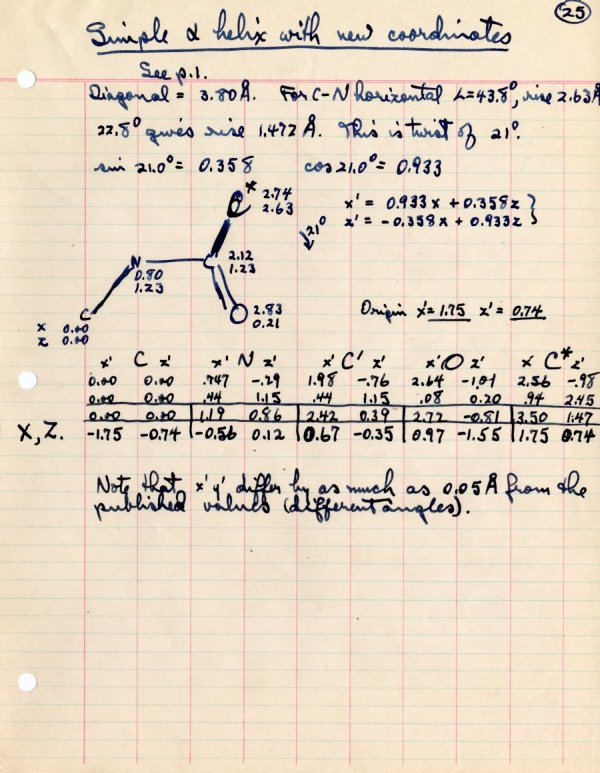 25
Simple α helix with new coordinates
See p.1.
Diagonal = 3.80Å. For C-N horizontal L=43.8°, rise 2.63Å
22.8° gives rise 1.472 Å. This is twist of 21°.
sin 21.0° = 0.358 cos 21.0° = 0.933
C* 2.74
2.63
x' = 0.933x + 0.358z
z' = -0.358x + 0.933z
21°
N C 2.12
0.80 1.23
1.23
O 2.83
0.21
C
x 0.00
z 0.00
Origin x'=1.75 z'=0.74
x' C z' x' N z' x' C' z' x' O z' x C* z'
0.00 0.00 .747 -.29 1.98 -.76 2.64 -1.01 2.56 -.98
0.00 0.00 .44 1.15 .44 1.15 .08 0.20 .94 2.45
0.00 0.00 1.19 0.86 2.42 0.39 2.72 -0.81 3.50 1.47
X, Z. -1.75 -0.74 -0.56 0.12 0.67 -0.35 0.97 -1.55 1.75 0.74
Note that x'y' differ by as much as 0.05Å from the
published values (different angles).